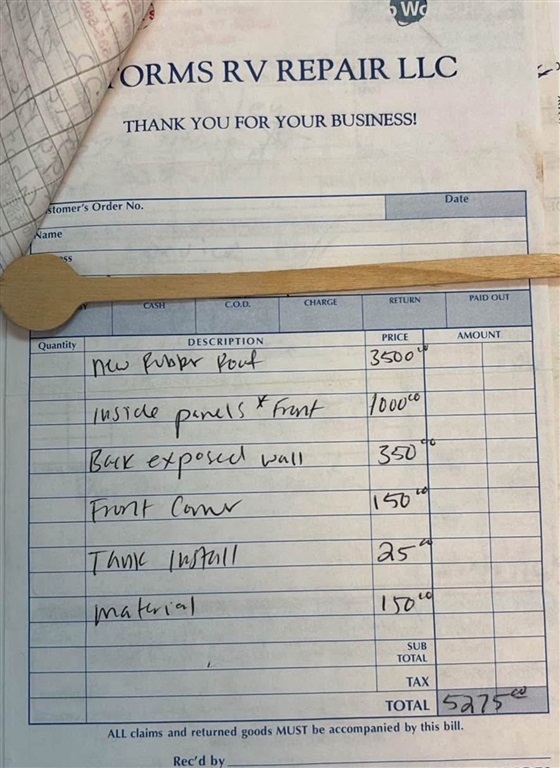 TORMS RV REPAIR LLC
THANK YOU FOR YOUR BUSINESS!
stomer's Order No. Date
Name
CASH C.O.D. CHARGE RETURN PAID OUT
Quantity DESCRIPTION PRICE AMOUNT
New Rubber Roof 3500 00
Inside panels * Front 1000 00
Back exposed wall 350 00
Front Corner 150 00
Tank Install 25 00
material 150 00
SUB
TOTAL
TAX
TOTAL 5275 00
ALL claims and returned goods MUST be accompanied by this bill.
Rec'd by